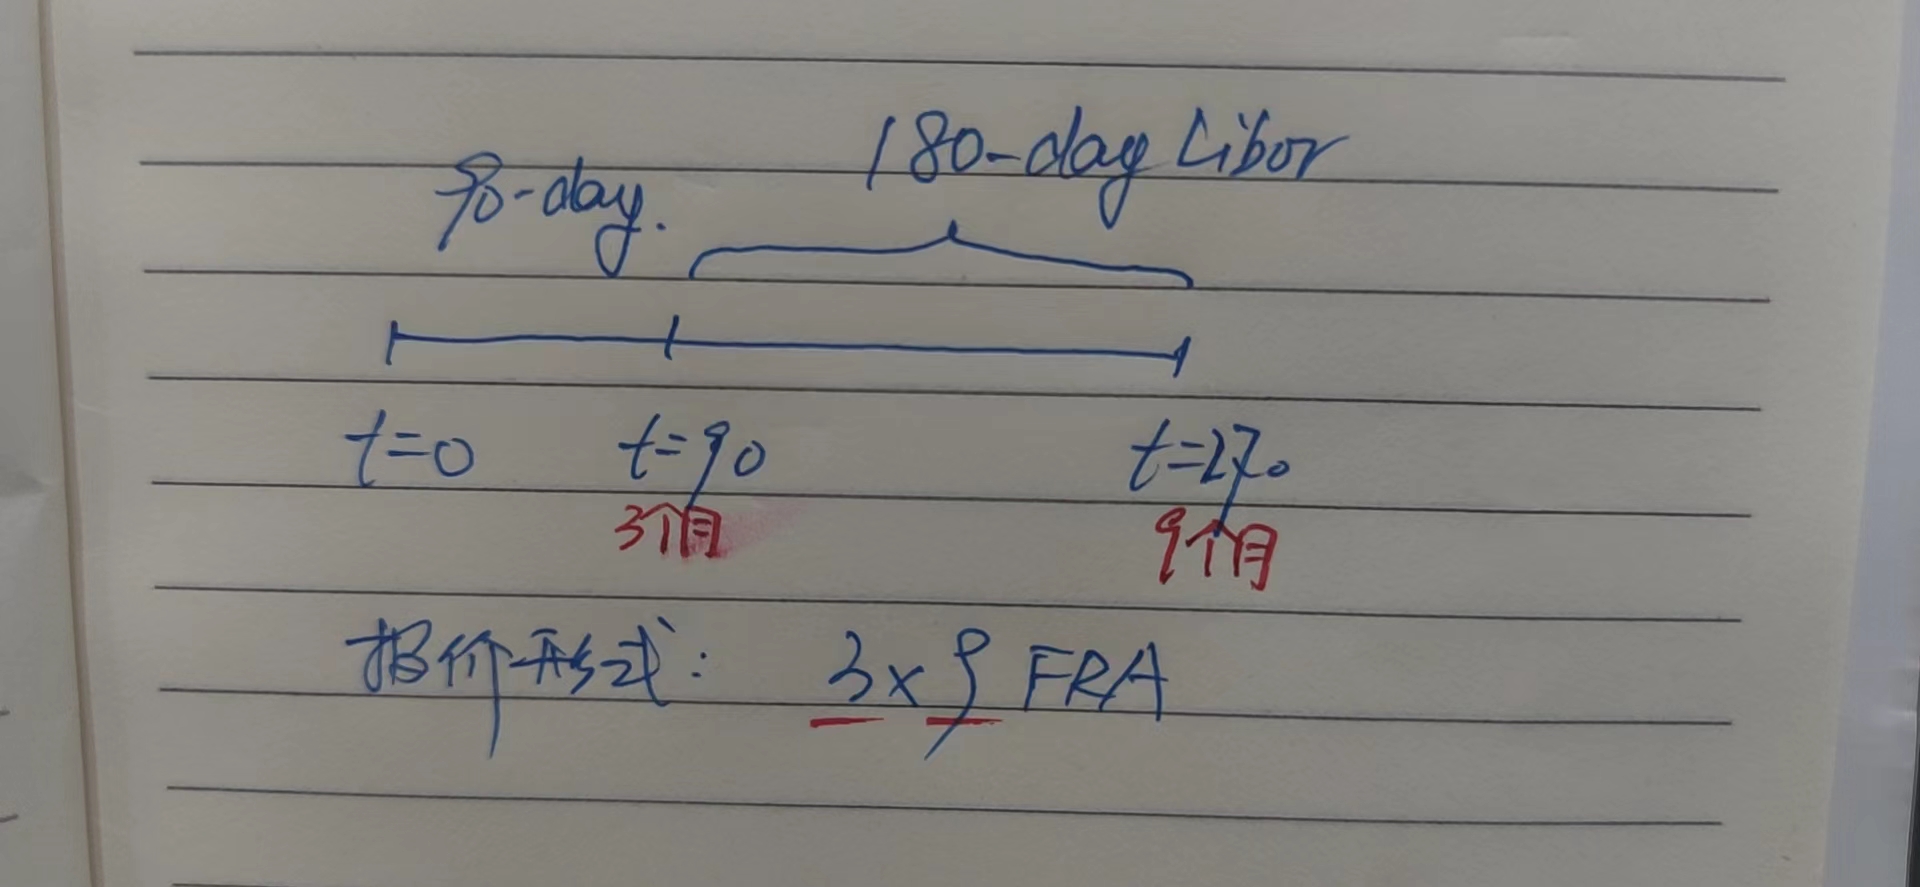 180-day Libor
90-day.
t=0 t=90 t=270
3个月 9个月
报价形式: 3×9 FRA